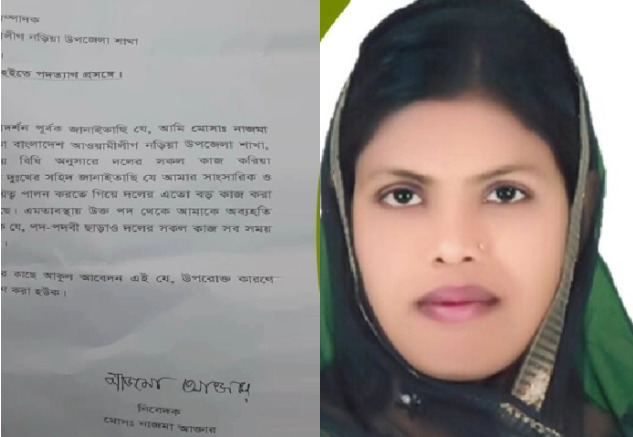 ম্পাদক
লীগ নড়িয়া উপজেলা শাখা
।
হইতে পদত্যাগ প্রসঙ্গে।
দর্শন পূর্বক জানাইতাছি যে, আমি মোসাঃ নাজমা
বাংলাদেশ আওয়ামীলীগ নড়িয়া উপজেলা শাখা,
য় বিধি অনুসারে দলের সকল কাজ করিয়া
দুঃখের সহিদ জানাইতাছি যে আমার সাংসারিক ও
পালন করতে গিয়ে দলের এতো বড় কাজ করা
ছে। এমতাবস্থায় উক্ত পদ থেকে আমাকে অব্যহতি
ক যে, পদ-পদবী ছাড়াও দলের সকল কাজ সব সময়
।
র কাছে আকুল আবেদন এই যে, উপরোক্ত কারণে
ণ করা হউক।
নাজমা আক্তার
নিবেদক
মোসাঃ নাজমা আক্তার